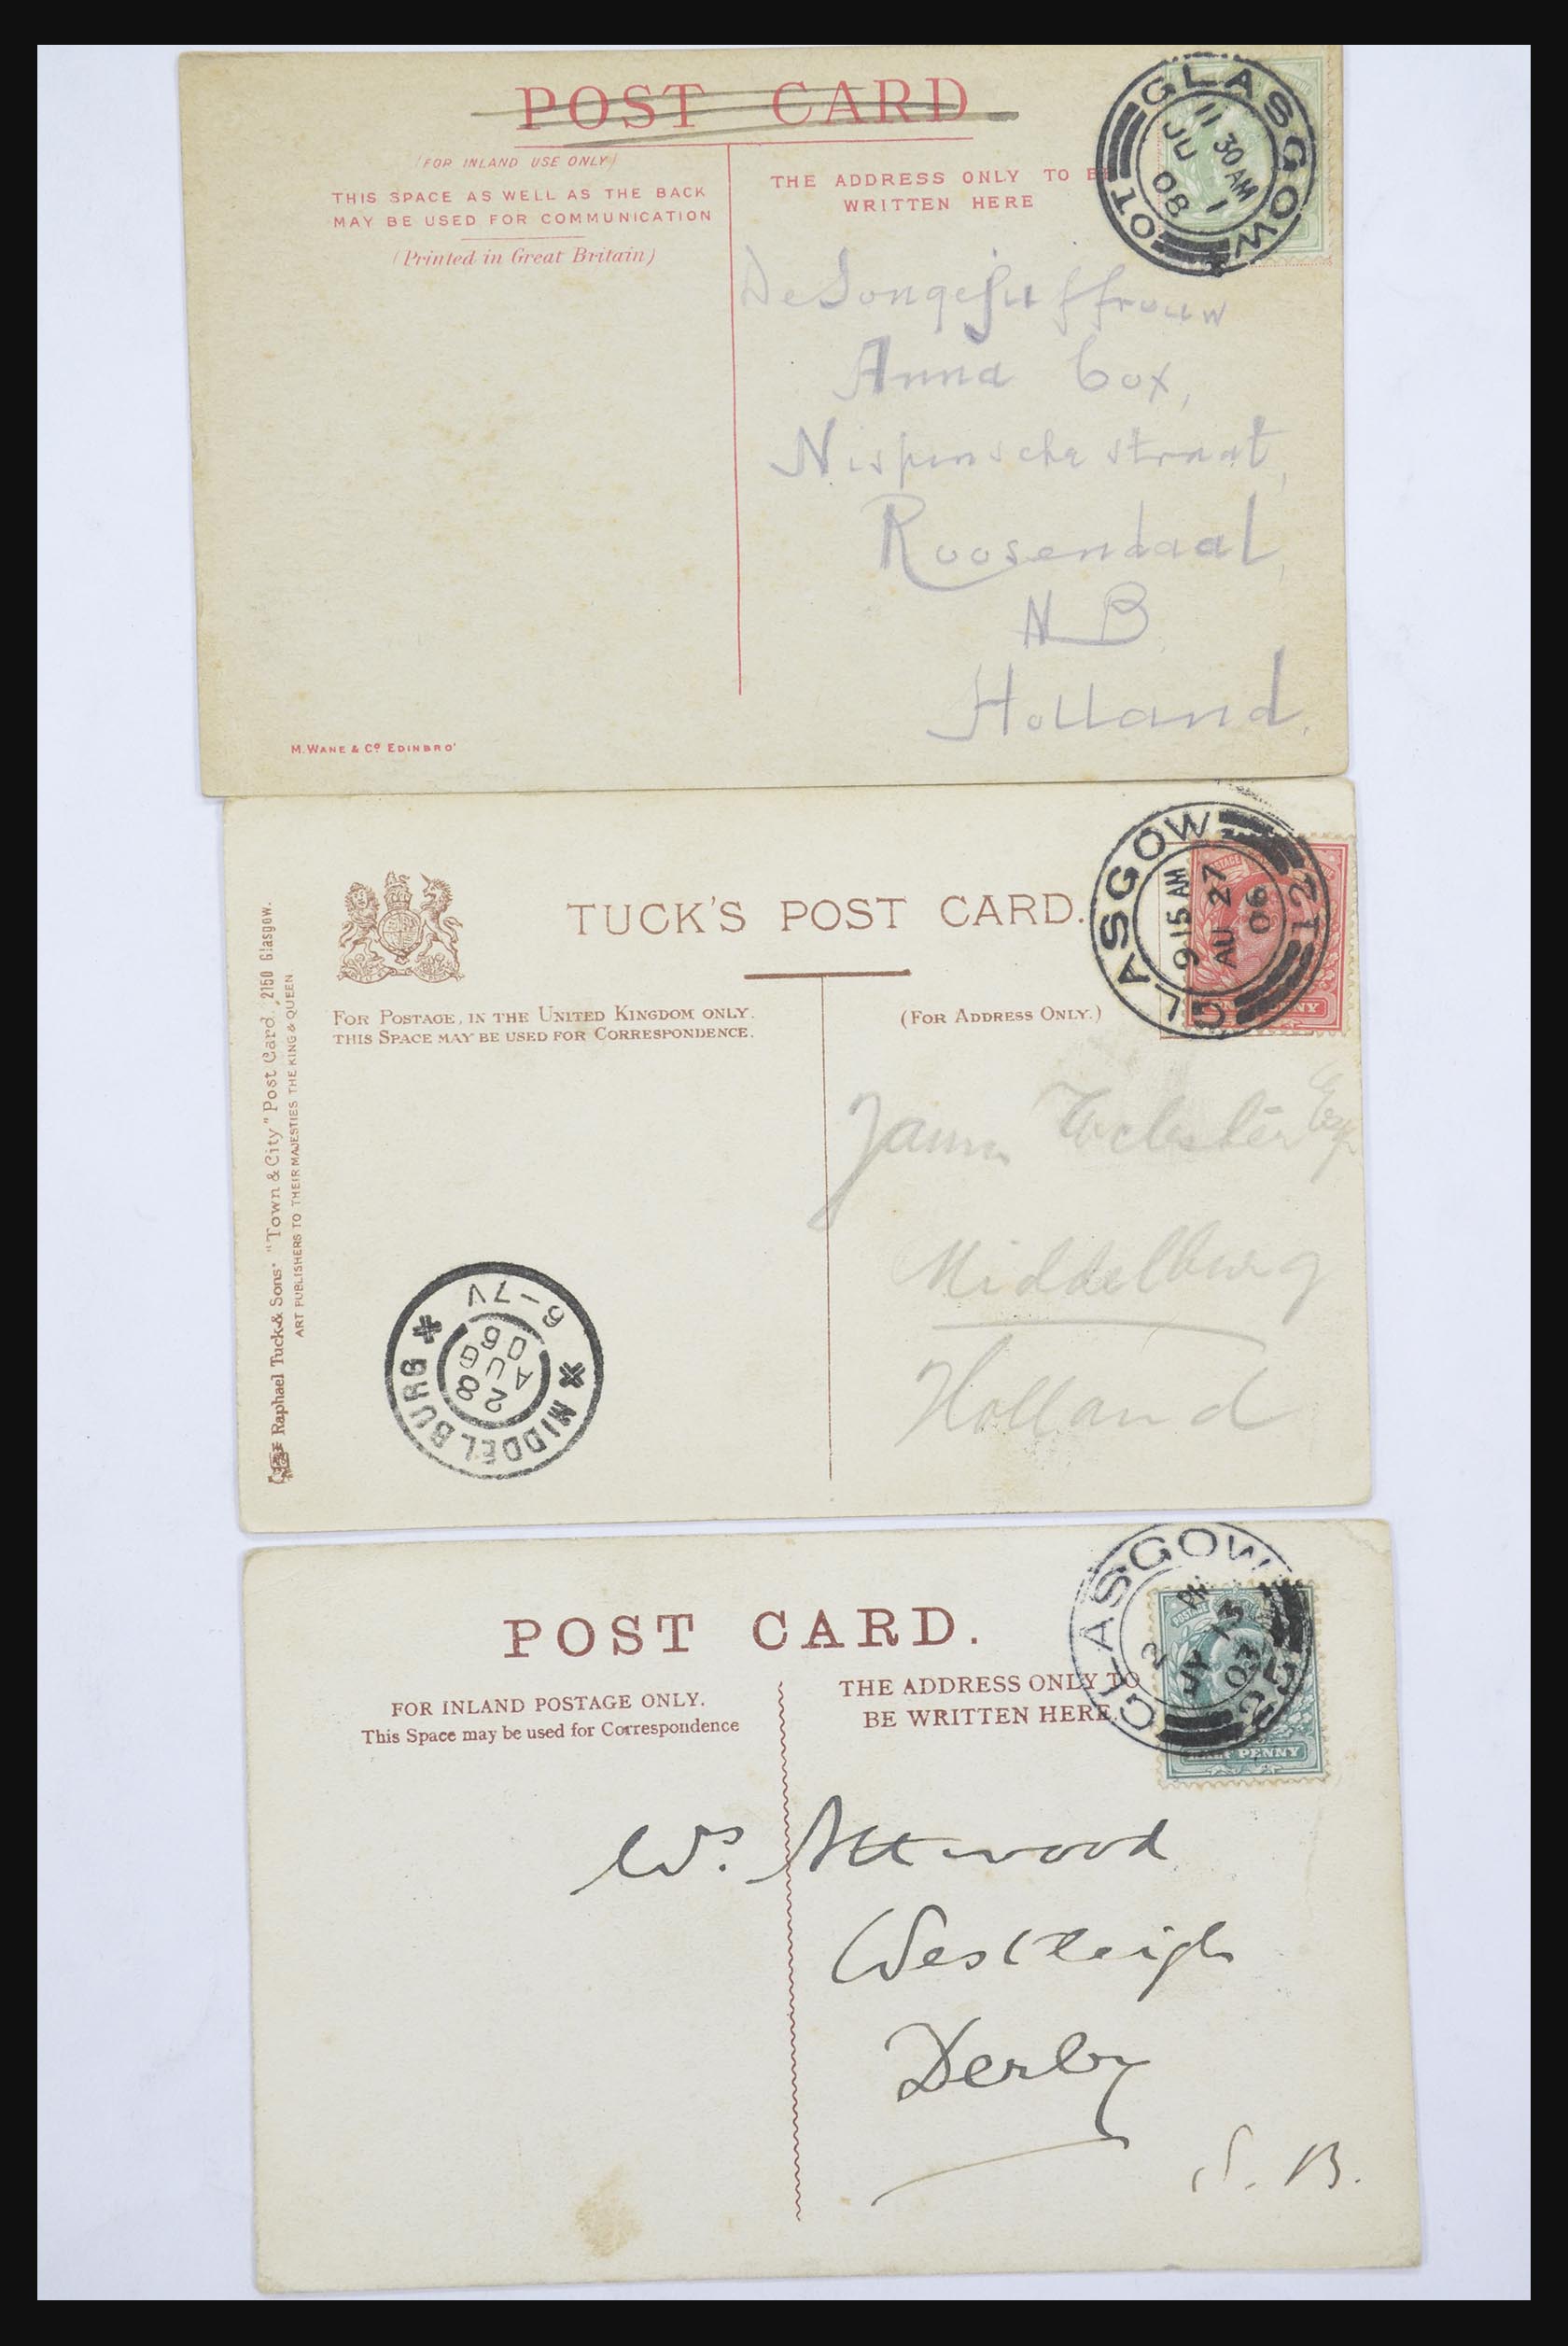 POST CARD
(FOR INLAND USE ONLY)
THIS SPACE AS WELL AS THE BACK
MAY BE USED FOR COMMUNICATION
(Printed in Great Britain)
THE ADDRESS ONLY TO BE
WRITTEN HERE
GLASGOW
11 30 AM
JU 1
08
Anna Cox,
Nispensche straat,
Roosendaal,
N B.
Holland.
M. WANE & Co. EDINBRO'
TUCK'S POST CARD.
FOR POSTAGE, IN THE UNITED KINGDOM ONLY.
THIS SPACE MAY BE USED FOR CORRESPONDENCE.
(FOR ADDRESS ONLY.)
GLASGOW
9 15 AM
AU 27
06
Raphael Tuck & Sons' "Town & City" Post Card. 2150 Glasgow.
ART PUBLISHERS TO THEIR MAJESTIES THE KING & QUEEN
Webster Esq
Middelburg
Holland
MIDDELBURG
6-7V
28
AUG
06
POST CARD.
FOR INLAND POSTAGE ONLY.
This Space may be used for Correspondence
THE ADDRESS ONLY TO
BE WRITTEN HERE.
GLASGOW
2 PM
JY 13
03
POSTAGE
HALF PENNY
Attwood
Westleigh
Derby
S. B.